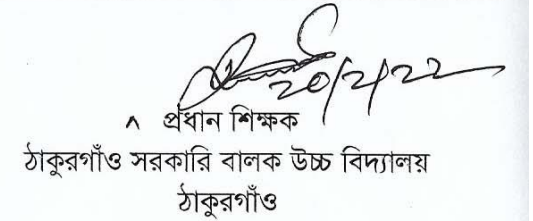 20/2/22
^ প্রধান শিক্ষক
ঠাকুরগাঁও সরকারি বালক উচ্চ বিদ্যালয়
ঠাকুরগাঁও